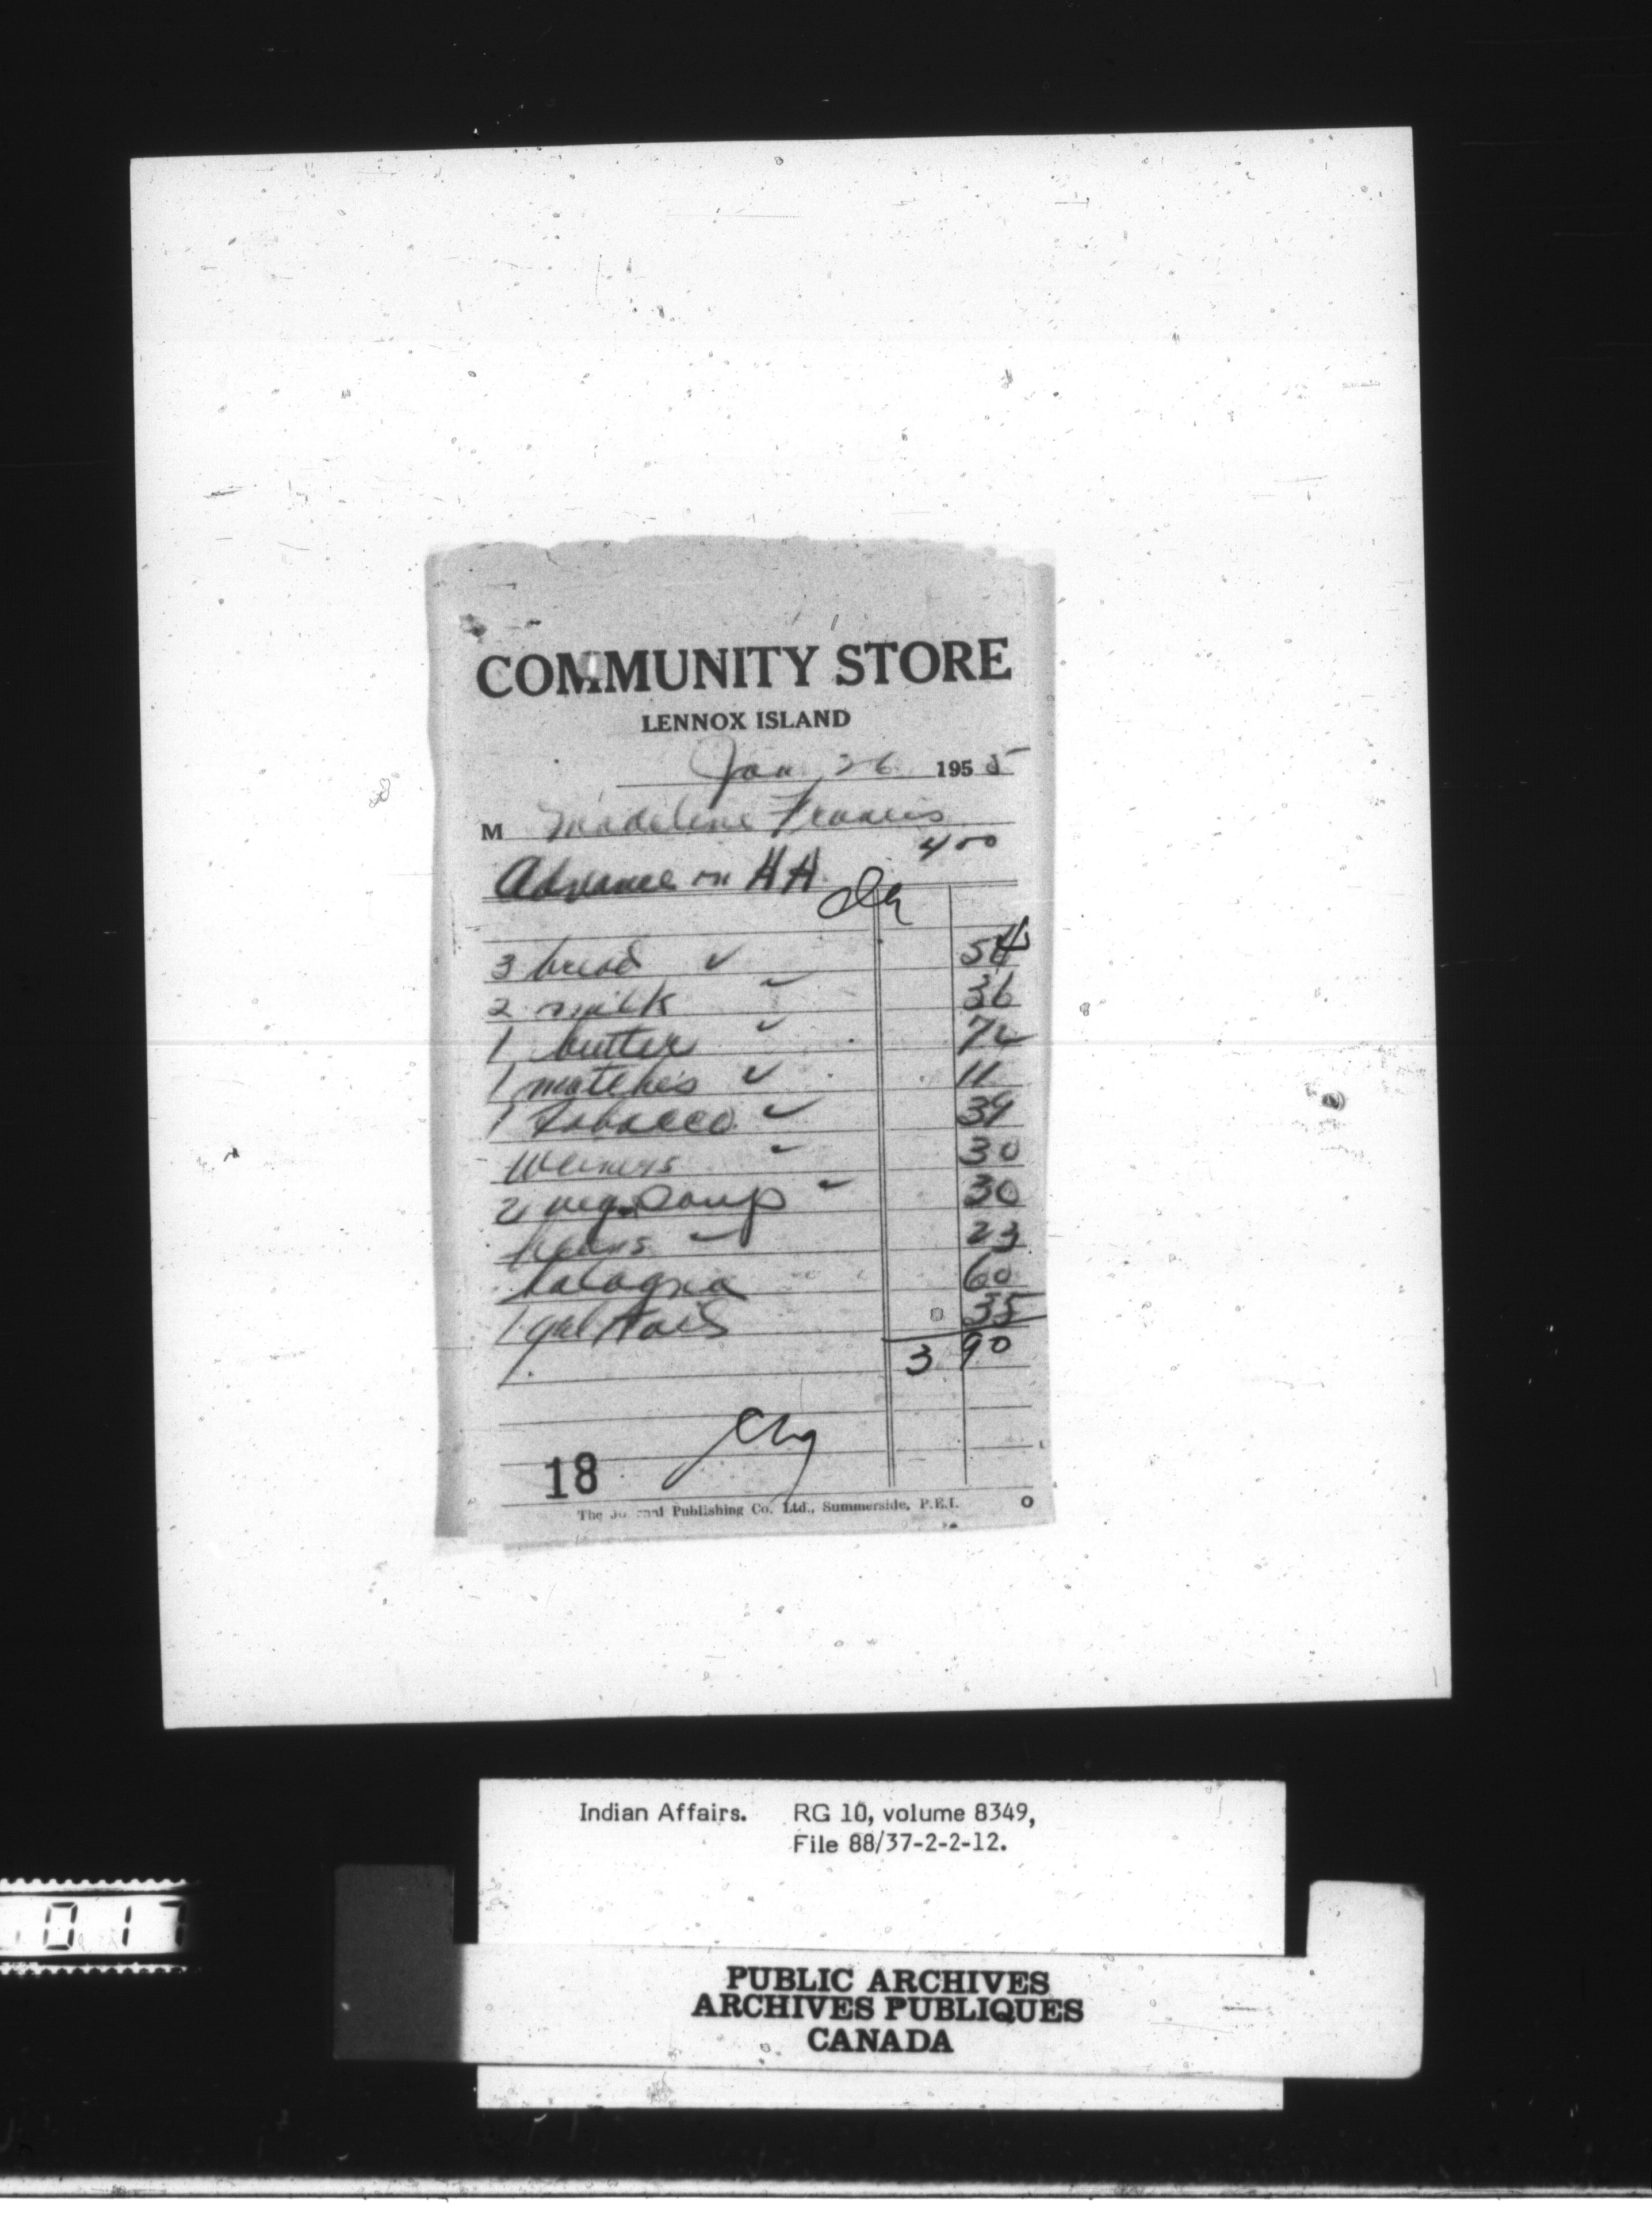 COMMUNITY STORE
LENNOX ISLAND
Jan 26 1955
M Madeline Francis
4 00
Advance on HA.
3 bread ✓ 54
2 milk ✓ 36
1 butter ✓ 72
1 matches ✓ 11
1 Tobacco ✓ 39
Weiners ✓ 30
2 veg. Soup ✓ 30
beans ✓ 23
balogna 60
1 gal 35
3 90
Chg
18
The Journal Publishing Co. Ltd., Summerside, P.E.I.
Indian Affairs. RG 10, volume 8349,
File 88/37-2-2-12.
017
PUBLIC ARCHIVES
ARCHIVES PUBLIQUES
CANADA